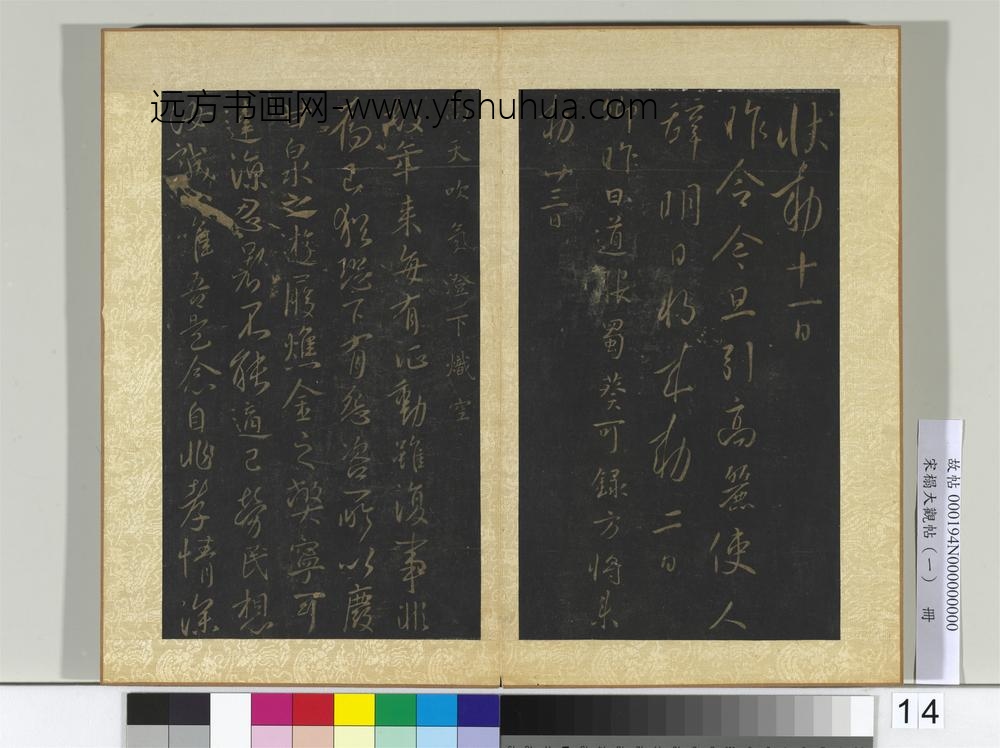 远方书画网-www.yfshuhua.com
状勅十一日
昨令今旦引高麗使人
辞明日将来勅二日
昨日道張蜀葵可録方將来
勅廿三日
天吹氣澄下熾空
故年来每有征動雖復事非
為己猶恐下有怨咨所以慶
泉之遊履燋金之弊寧可
違涼忍暑不能適己勞民想
汝誠唯吾是念自非孝情深
故帖000194N000000000
宋榻大觀帖(一) 冊
14